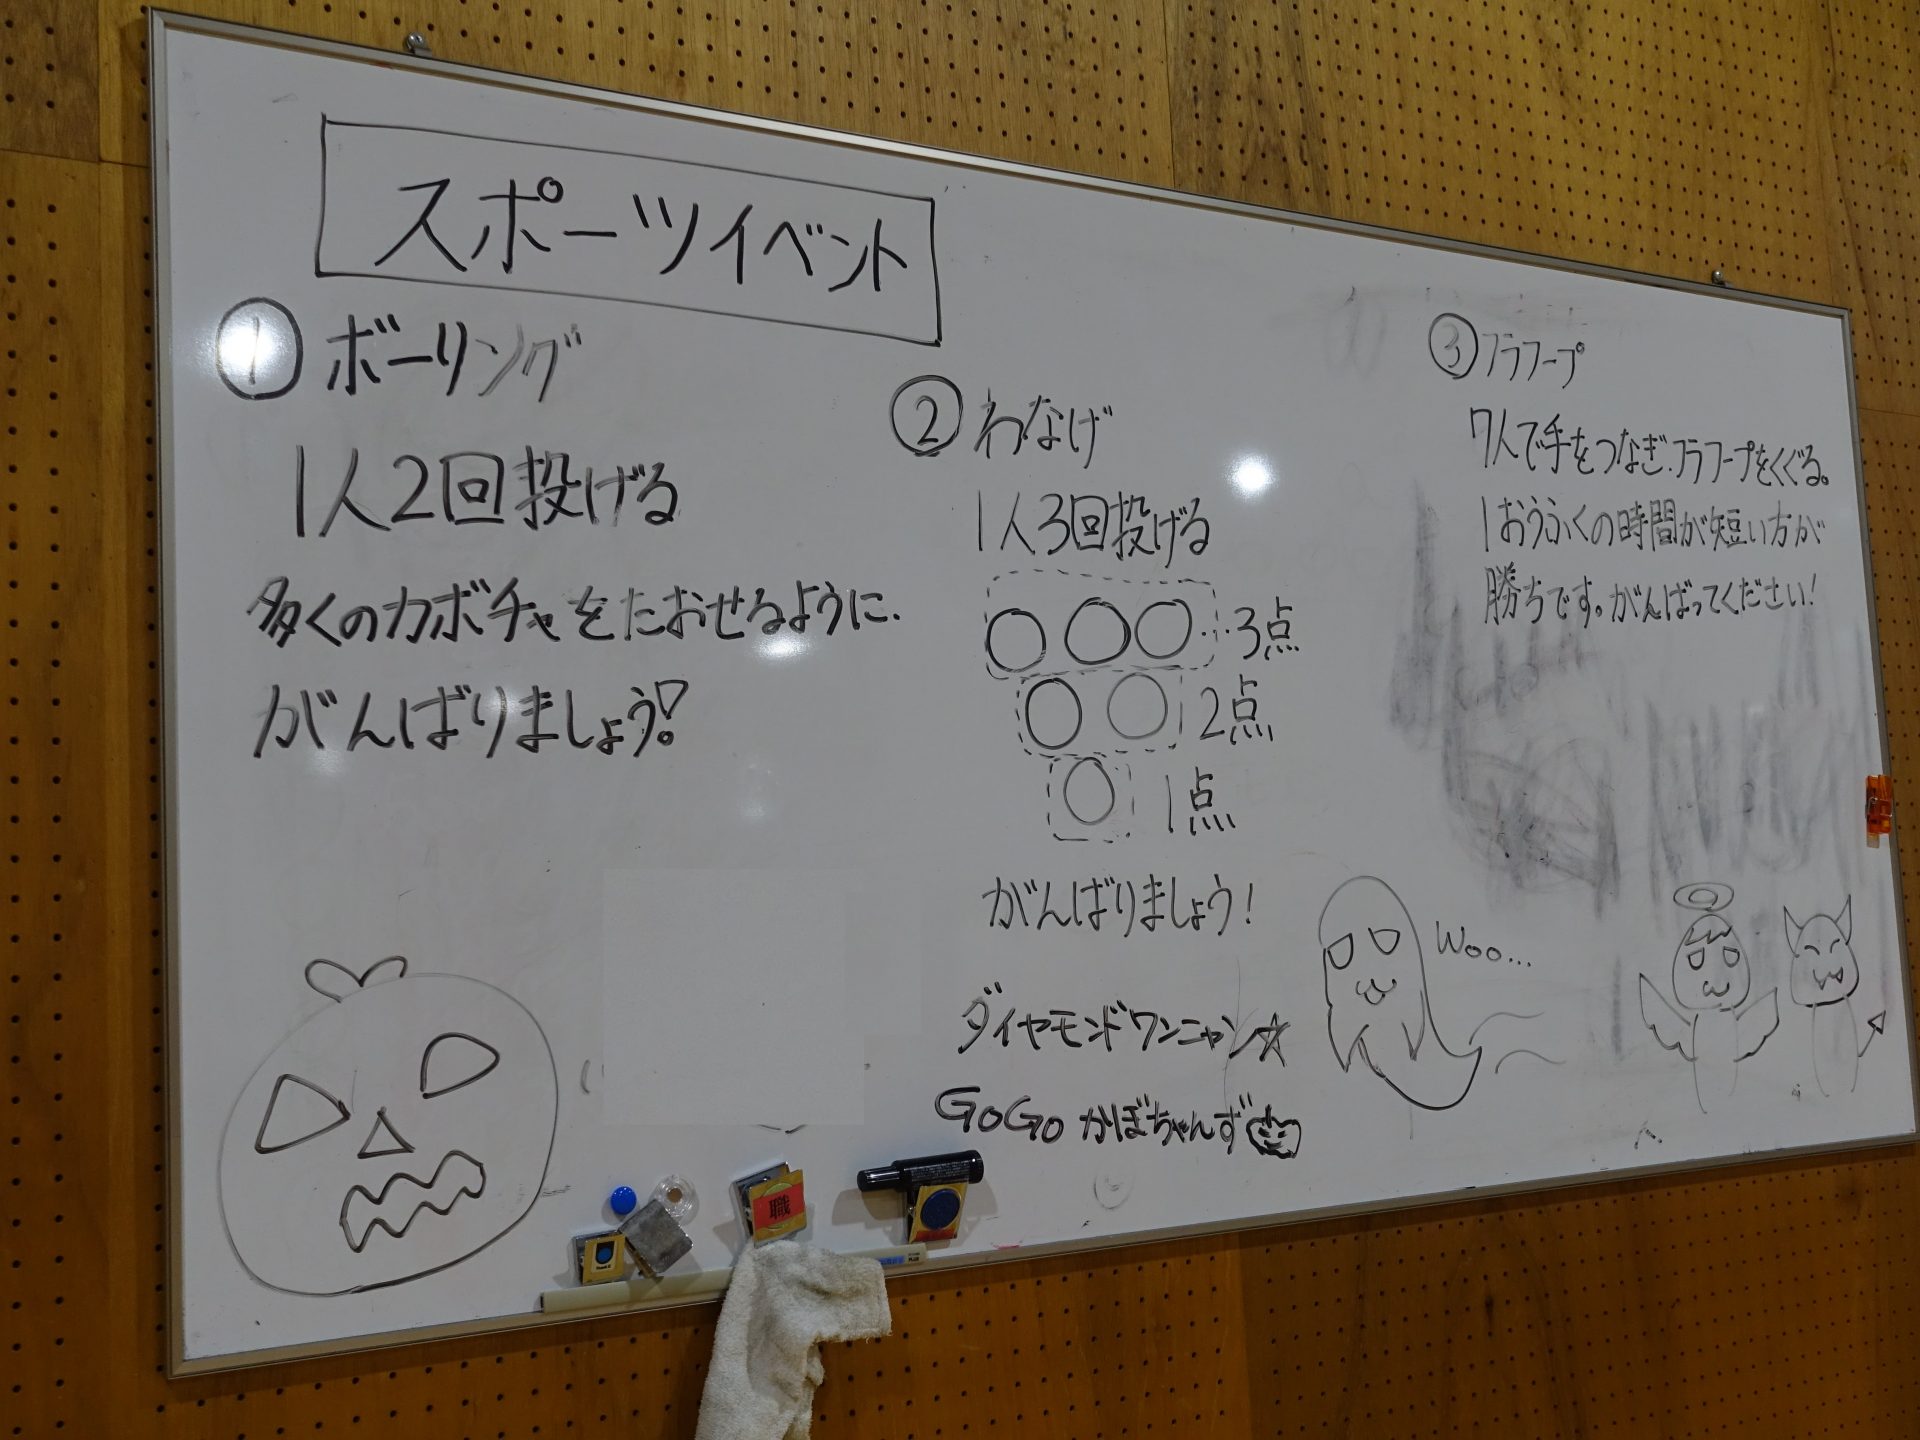 スポーツイベント
① ボーリング
1人2回投げる
多くのカボチャをたおせるように、
がんばりましょう!
② わなげ
1人3回投げる
…3点
2点
1点
がんばりましょう!
ダイヤモンドワンニャン☆
GoGo かぼちゃんず
③ フラフープ
7人で手をつなぎ、フラフープをくぐる。
1おうふくの時間が短い方が
勝ちです。がんばってください!
Woo...
職